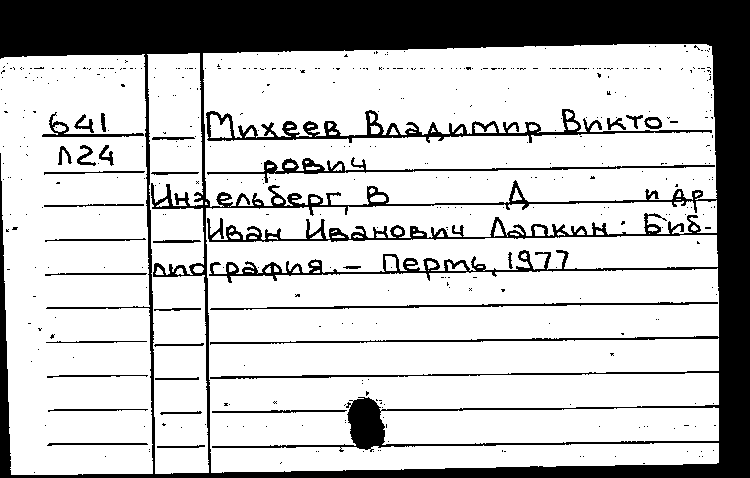 641 Михеев, Владимир Викто-
Л24 рович
Инзельберг, В Д и др
Иван Иванович Лапкин: Биб-
лиография. – Пермь, 1977